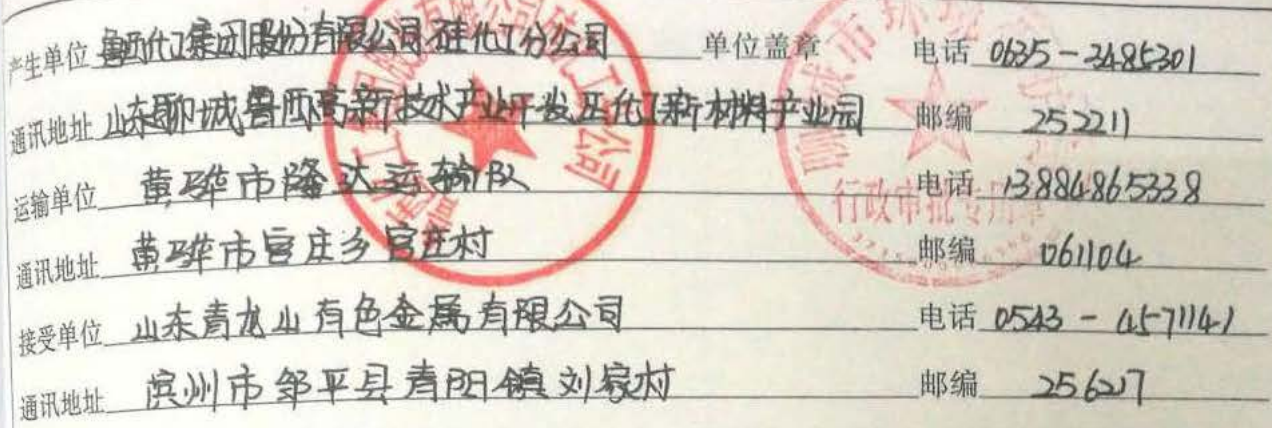 产生单位 鲁西化工集团股份有限公司硅化工分公司 单位盖章 电话 0635-3485301
通讯地址 山东聊城鲁西高新技术产业开发区化工新材料产业园 邮编 252211
运输单位 黄骅市隆达运输队 电话 13884865338
通讯地址 黄骅市官庄乡官庄村 邮编 061104
接受单位 山东青龙山有色金属有限公司 电话 0543-4571141
通讯地址 滨州市邹平县青阳镇刘家村 邮编 256217
行政审批专用章